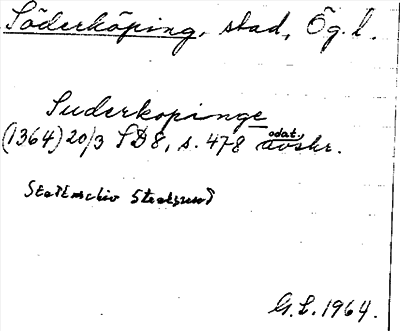 Söderköping, stad, Ög. l.
Suderkopinge
(1364) 20/3 SD 8, s. 478 odat. avskr.
Stadtarchiv Stralsund
G.L. 1964.